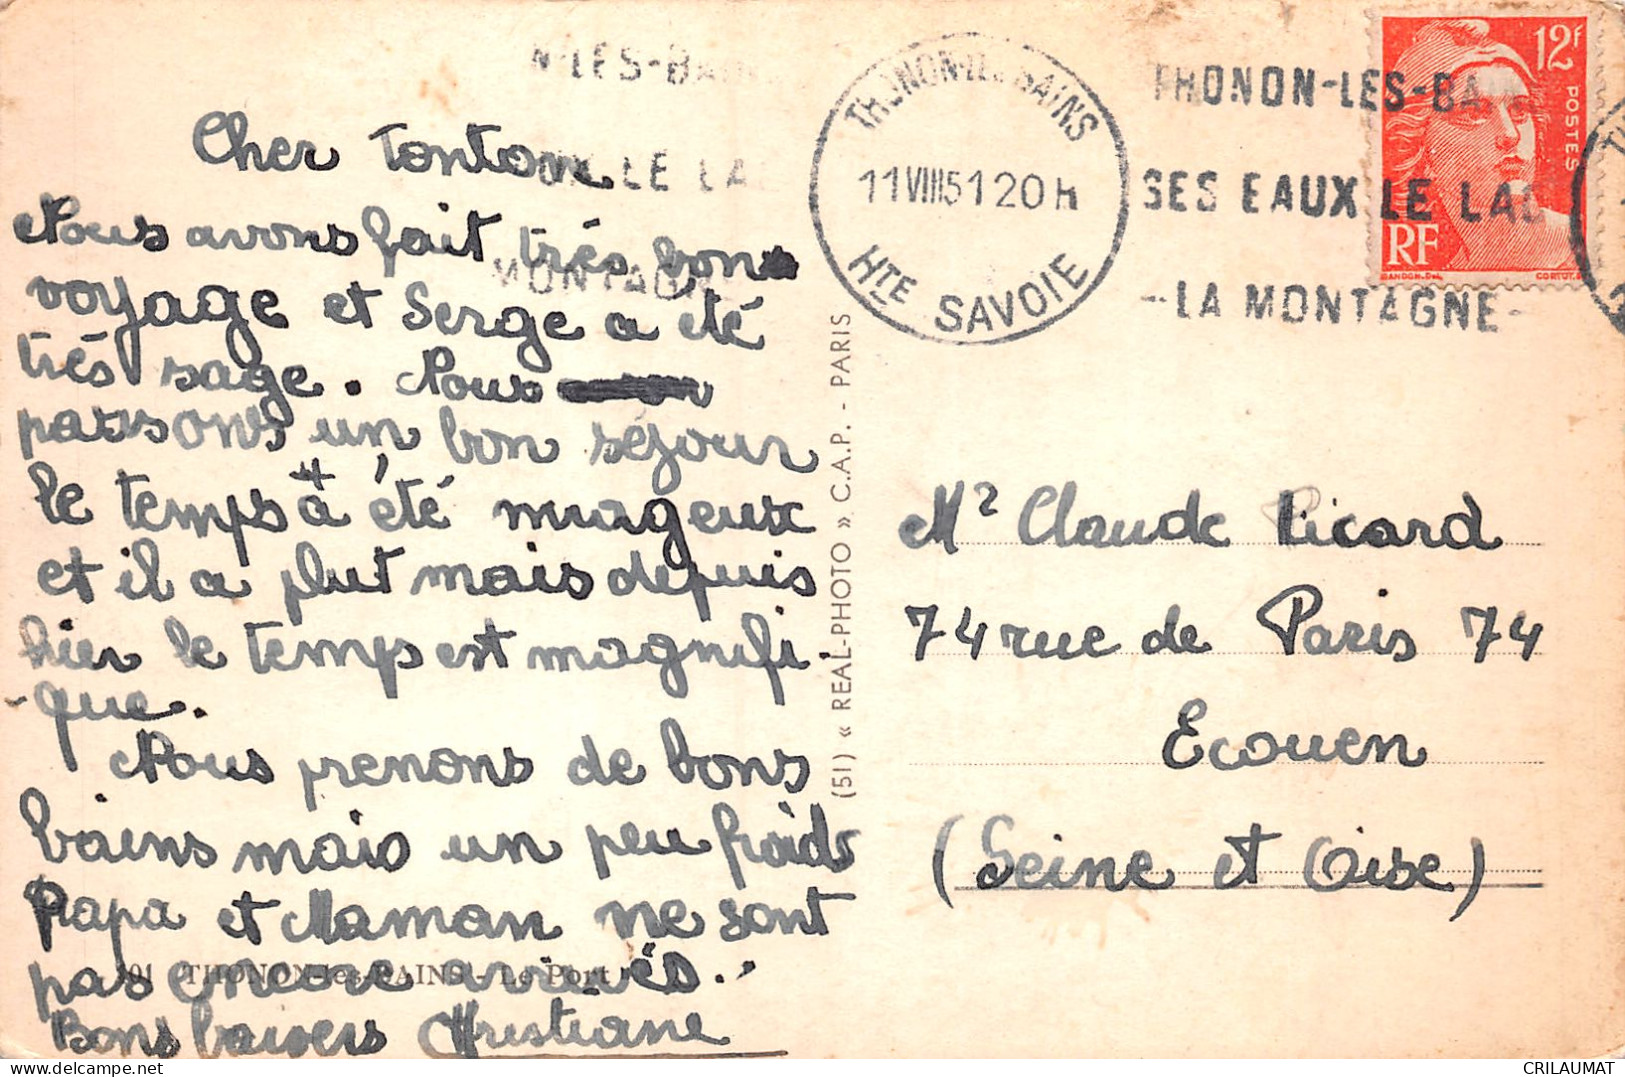 N-LES-BAIN
UX LE LA
MONTAGNE
THONON-LES-BAINS
11 VIII 51 20 H
HTE SAVOIE
THONON-LES-BA
SES EAUX LE LAC
-LA MONTAGNE-
12F
POSTES
RF
GANDON.Del.
Cher Tonton
Nous avons fait très bon
voyage et Serge a été
très sage. Nous
passons un bon séjour
le temps à été nuageux
et il a plut mais depuis
hier le temps est magnifi
-que.
Nous prenons de bons
bains mais un peu froids
Papa et Maman ne sont
pas encore arrivés..
Bons baisers Christiane
101 THONON-les-BAINS - Le Port
(51) « REAL-PHOTO » C.A.P. - PARIS
Mr Claude Picard
74 rue de Paris 74
Ecouen
(Seine et Oise)
CRILAUMAT